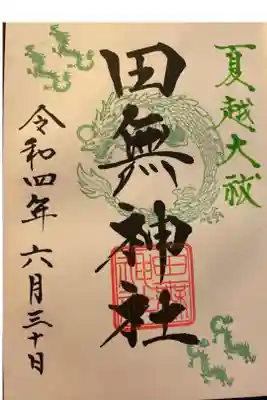 夏越大祓
田無神社
令和四年 六月三十日